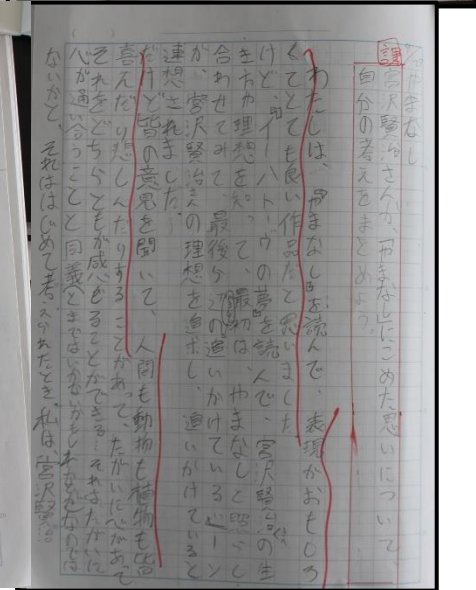 やまなし
課 宮沢賢治さんが「やまなし」にこめた思いについて、
自分の考えをまとめよう。
わたしは、「やまなし」を読んで、表現がおもしろ
くてとても良い作品だと思いました。
けど、「イーハトーヴの夢」を読んで、宮沢賢治の生
き方や理想を知って、最初は、やまなしと照らし
合わせてみて、最後の追いかけているシーン
が、宮沢賢治さんの理想を追求し、追いかけていると
連想されました。
だけど皆の意見を聞いて、人間も動物も植物も皆
喜んだり悲しんだりすることがあって、たがいに心があって
それをどちらともが感じることができる。それはたがいに
心が通い合うことと同義とまではいかないかもしれないけど
ないかと それははじめて考えられたとき、私は、宮沢賢治